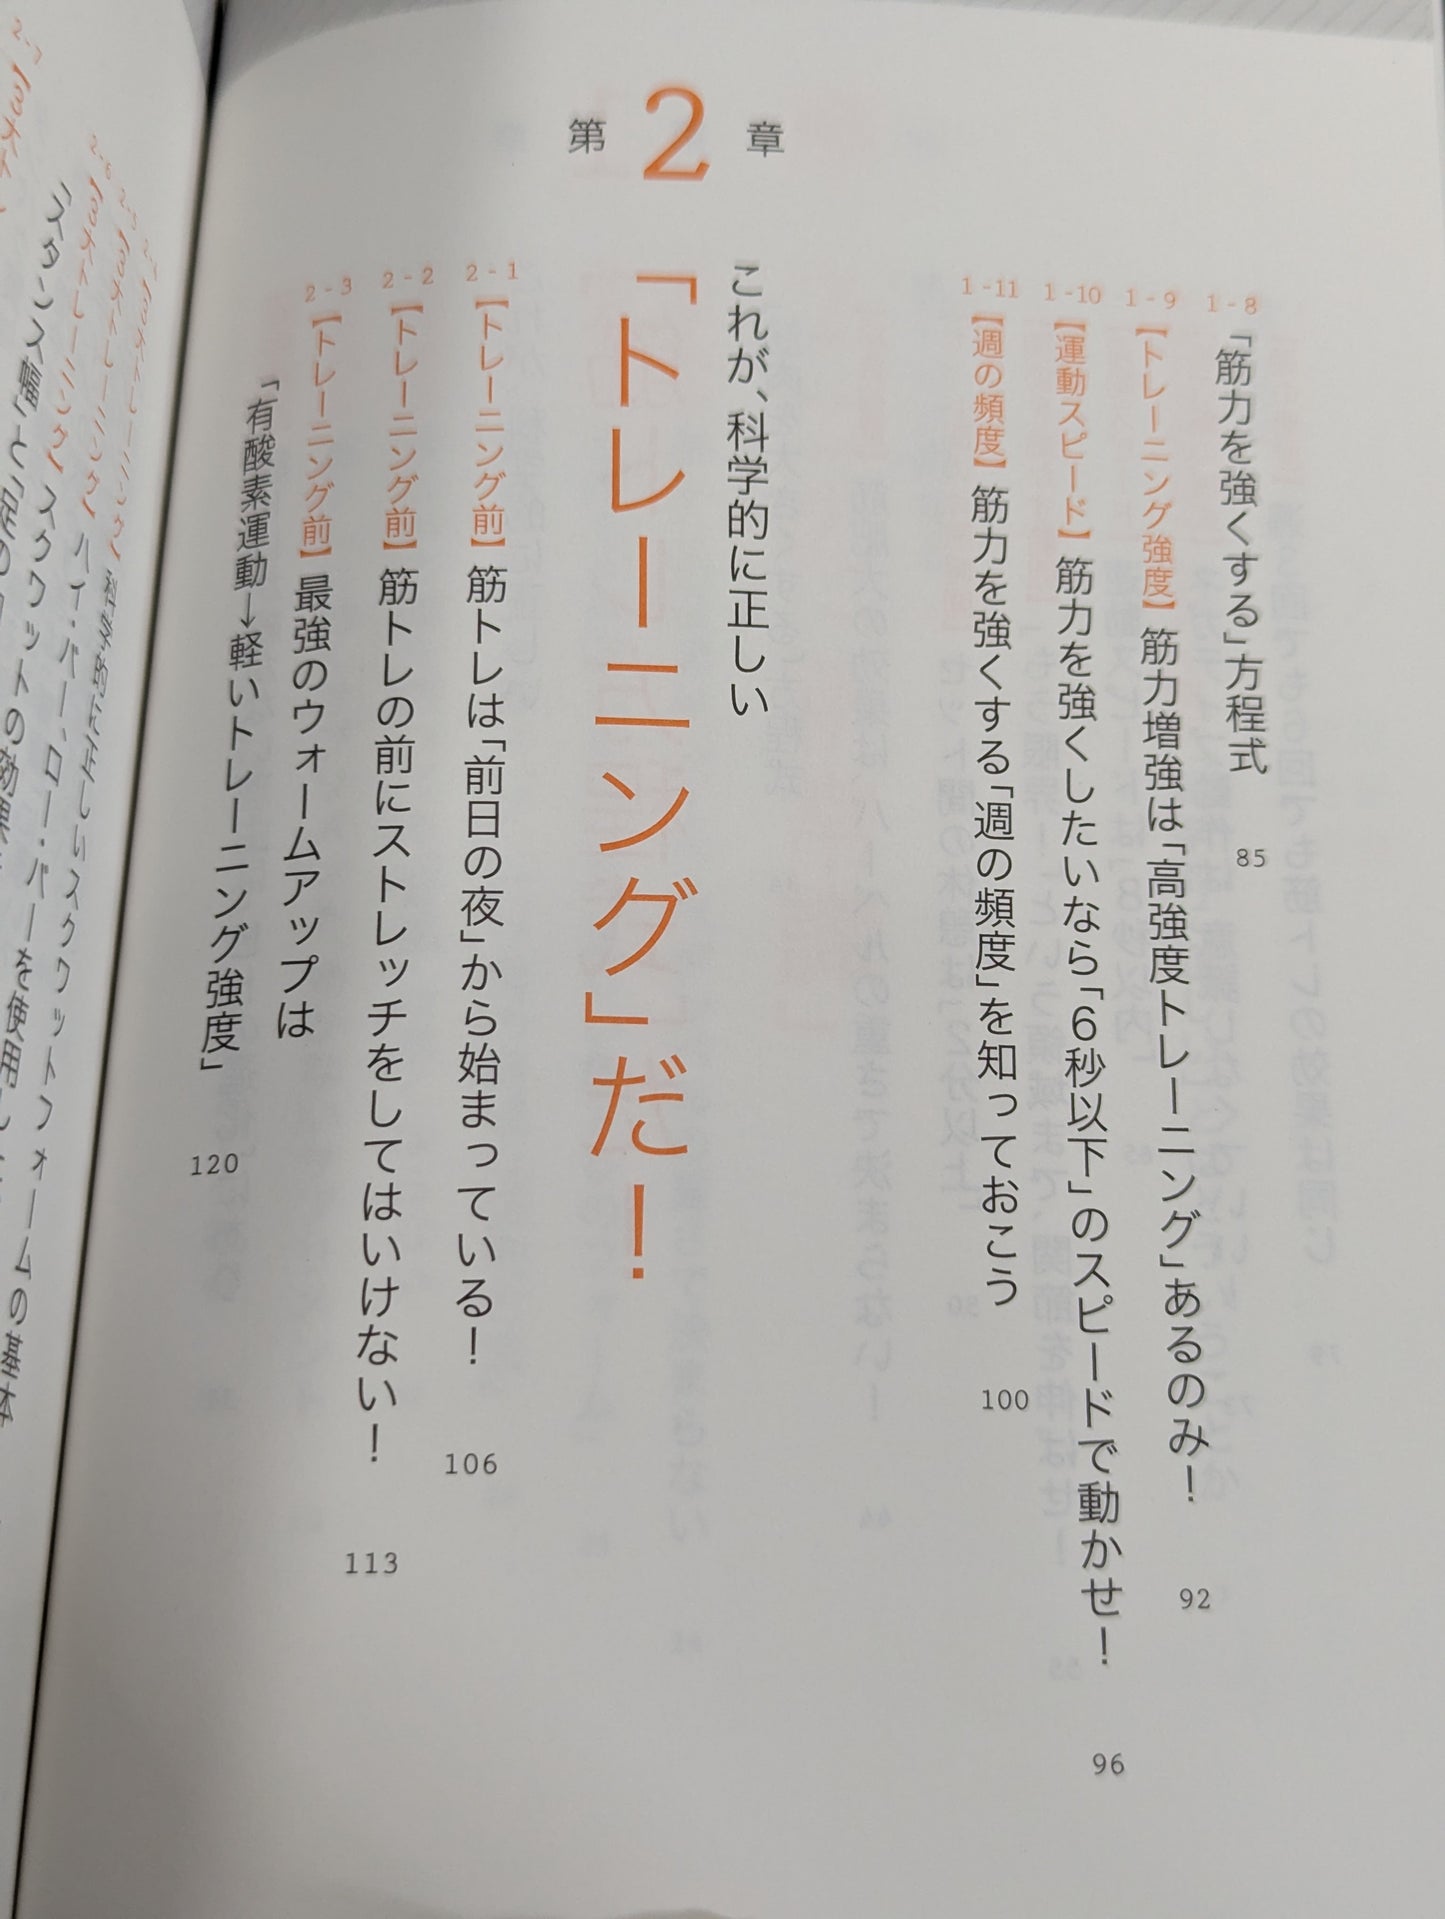 1-8
「筋力を強くする」方程式
85
1-9
【トレーニング強度】筋力増強は「高強度トレーニング」あるのみ！
92
1-10
【運動スピード】筋力を強くしたいなら「6秒以下」のスピードで動かせ！
96
1-11
【週の頻度】筋力を強くする「週の頻度」を知っておこう
100
第2章
これが、科学的に正しい
「トレーニング」だ！
2-1
【トレーニング前】筋トレは「前日の夜」から始まっている！
106
2-2
【トレーニング前】筋トレの前にストレッチをしてはいけない！
113
2-3
【トレーニング前】最強のウォームアップは
「有酸素運動→軽いトレーニング強度」
120
科学的に正しいスクワットフォームの基本
2-5
ハイ・バー、ロー・バーを使用し
2-6
スクワットの効果
「スタンス幅」と「足の
2-7